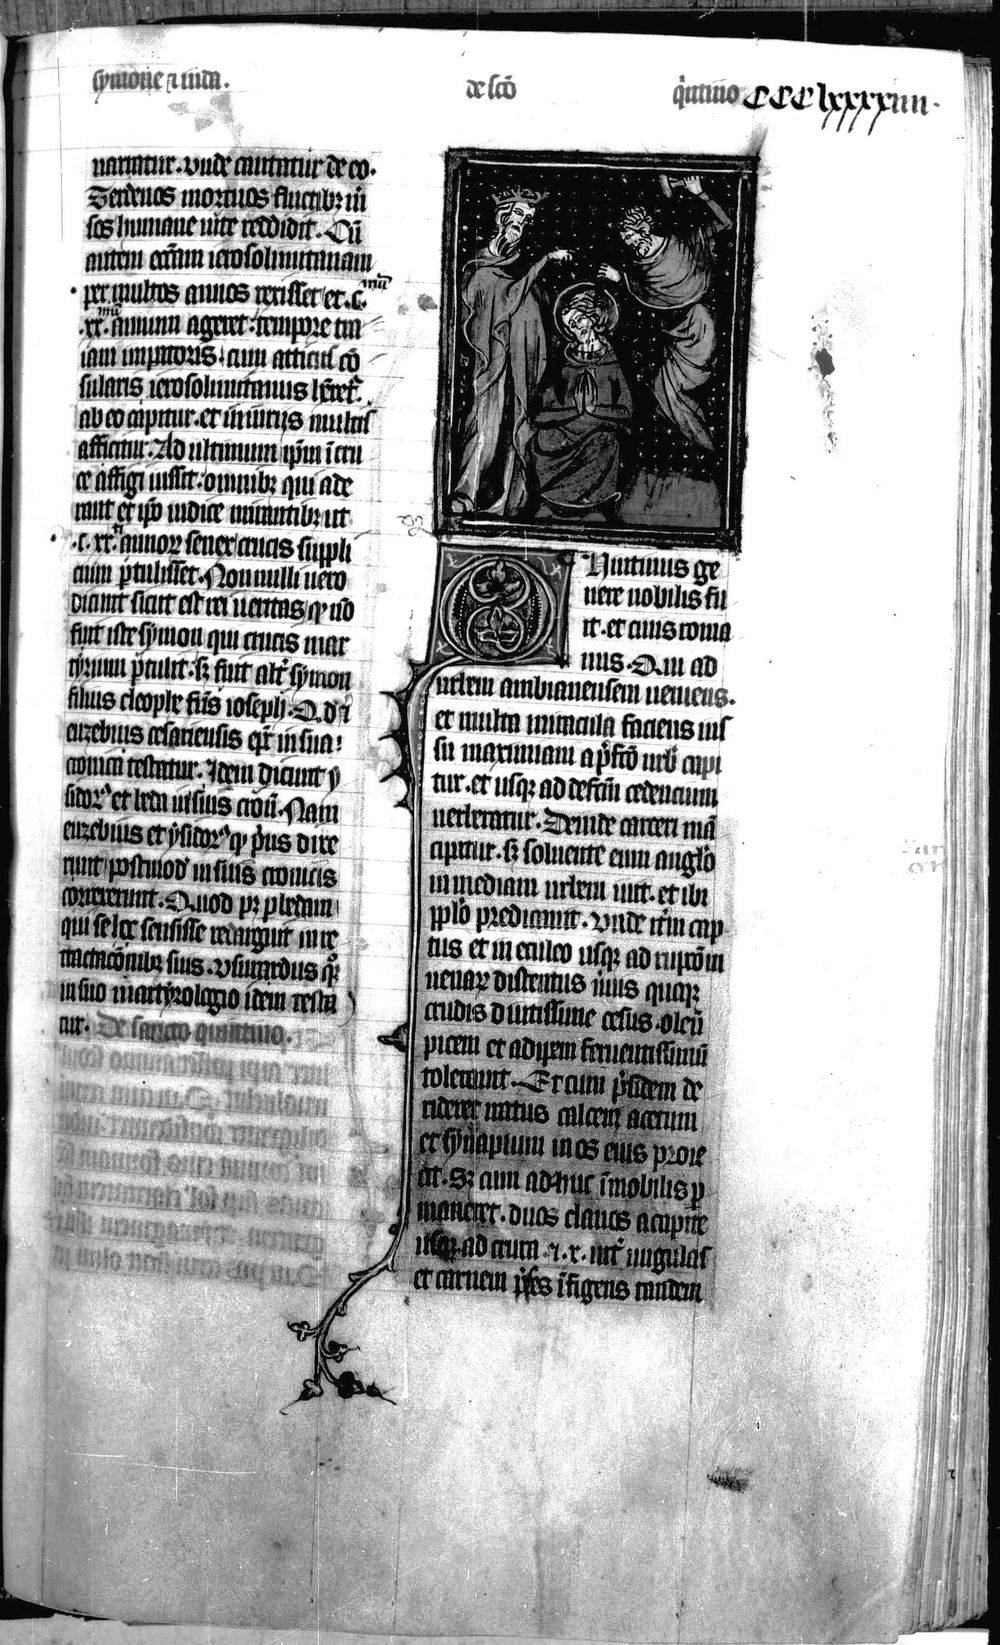 symone ⁊ iuda.
de sco᷒
q̓ntino CCClxxxxiiii.
nariatur. vnde cantatur de eo.
Ter denos mortuos fluctib; mer
sos humane uite reddidit. Cū
autem eccliam ierosolimitanam
per multos annos rexisset et .c.mū
.xx.mū annum ageret. tempore tra
iani imp̃atoris. cum atticus cō
sularis ierosolimitanus h̃ret̃.
ab eo capitur. et iniuriis multis
afficitur. Ad ultimum ip̃m ī cru
ce affigi iussit. omnib; qui ade
rant et ip̃o iudice mirantib; ut
.c.xx.ti annoꝝ senex crucis suppli
cium p̃tulisset. Nonnulli uero
dicunt sicut est rei ueritas qͥ nō
fuit iste symon qui crucis mar
tyrium p̃tulit. sꝫ fuit alt̃ symon
filius cleophe fr̃is ioseph. Qd̃ ⁊
euzebius cesariensis ep̃c in sua
cronica testatur. Idem dicunt y
sidor᷒ et beda in suis croni. Nam
euzebius et ysidor᷒ qͥ p̃us dixe
runt postmod̃ in suis cronicis
correxerunt. Quod pꝫ p̱ bedam
qui se hoc sensisse redarguit in re
tractacōnib; suis. Vsuardus q̨;
in suo martyrologio idem testa
tur. De sancto quintino.
Quintinus ge
nere nobilis fu
it. et ciuis roma
nus. Qui ad
urbem ambianensem ueniens.
et multa miracula faciens ius
su maximiani a p̃fc̃o urb̃ capi
tur. et usq; ad defcm̃ cedencium
uerberatur. Deinde carceri mā
cipatur. sꝫ soluente eum angl̃o
in mediam urbem iuit. et ibi
pp̃lo predicauit. Vnde itm̃ cap
tus et in eculeo usq; ad rupc̃om
uenaꝝ distentus n̓uis quoq;
crudis diutissime cesus. oleū
picem et adipem feruentissimū
tolerauit. Et cum p̃sidem de
rideret iratus calcem acetum
et synapium in os eius proie
cit. Sꝫ cum adhuc īmobilis p̱
maneret. duos clauos a capite
usq; ad crura ⁊ .x. int̃ ungulas
et carnem p̃ses ī figens tandem